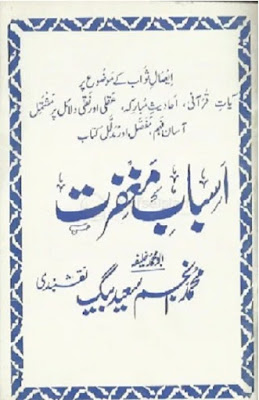 ایصالِ ثواب کے موضوع پر
آیاتِ قرآنی، احادیثِ مبارکہ، عقلی اور نقلی دلائل پر مشتمل
آسان فہم، مفصّل اور مدلّل کتاب
اسبابِ مغفرت
ابو محمد خلیفہ
محمد انجم سعید بیگ نقشبندی